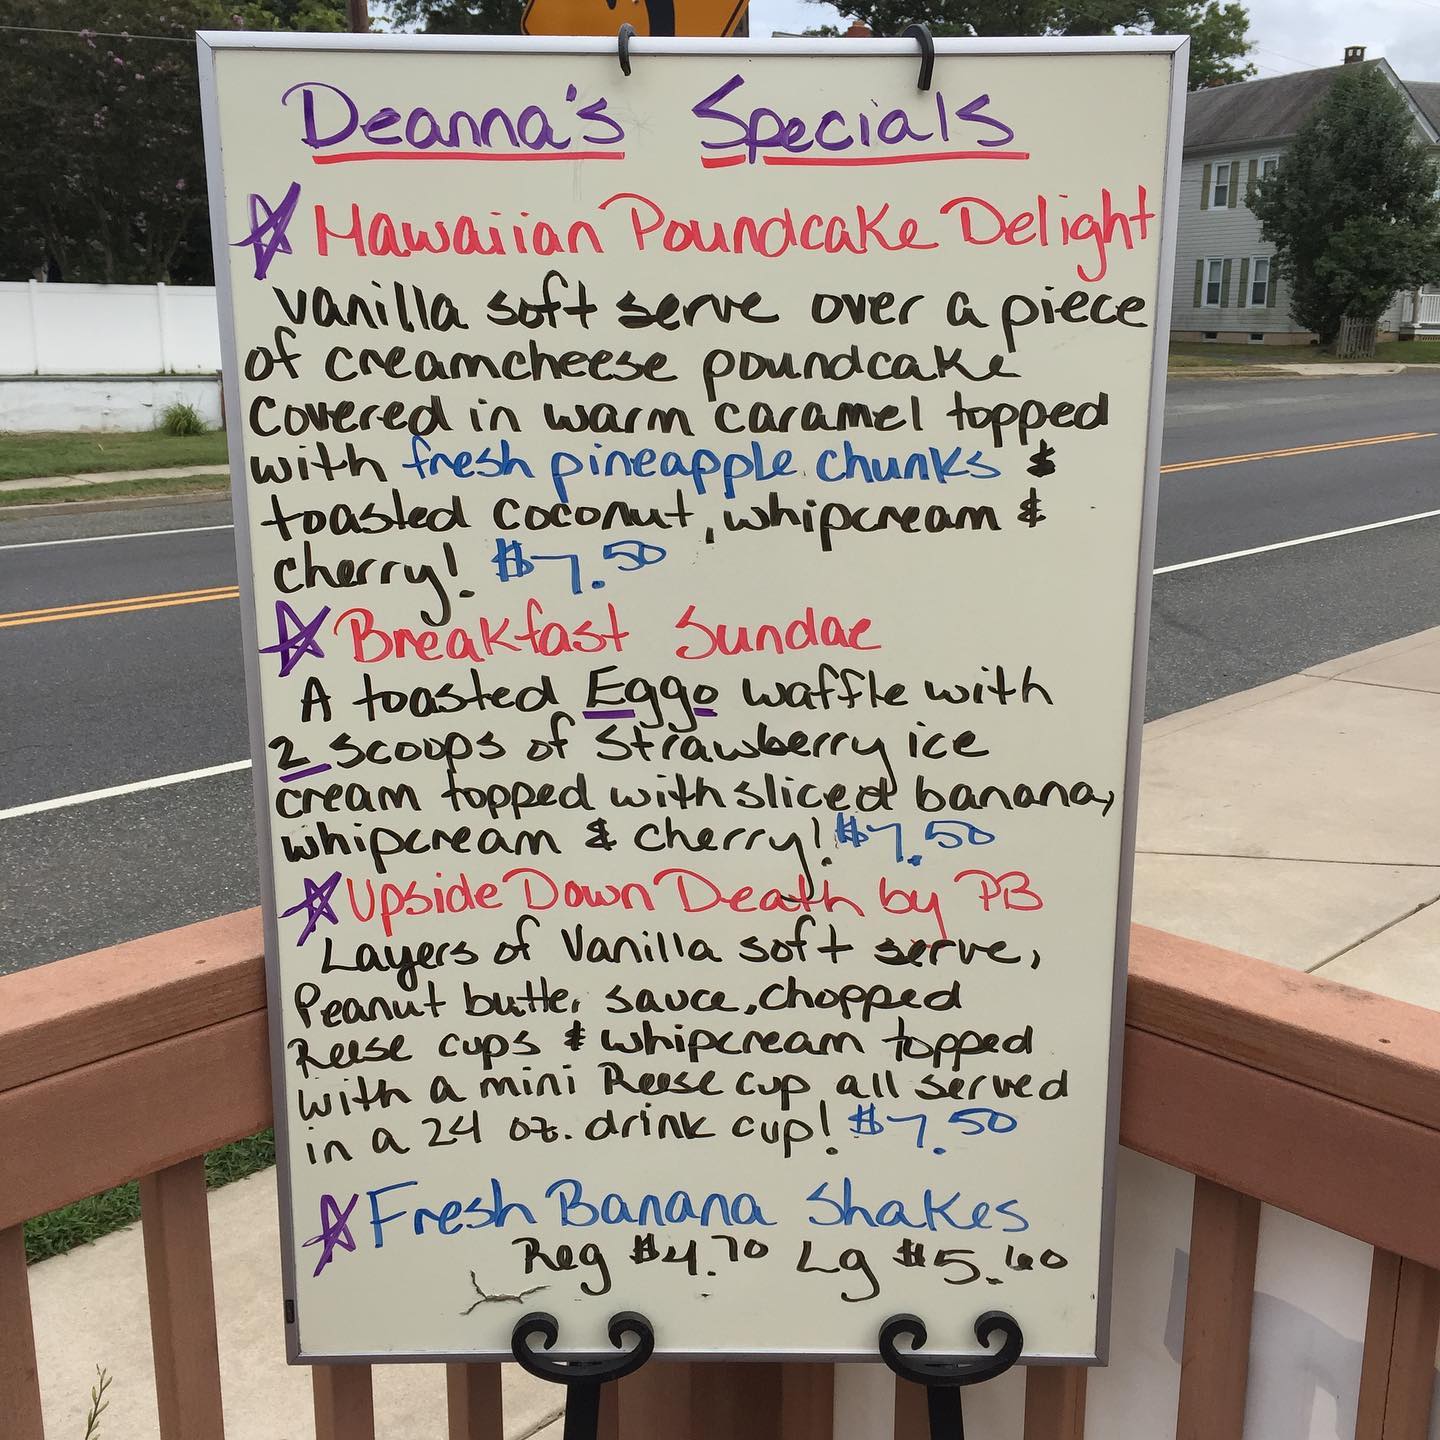 Deanna's Specials
Hawaiian Poundcake Delight
Vanilla soft serve over a piece
of creamcheese poundcake
Covered in warm caramel topped
with fresh pineapple chunks &
toasted coconut, whipcream &
cherry! $7.50
Breakfast Sundae
A toasted Eggo waffle with
2 scoops of Strawberry ice
cream topped with sliced banana,
whipcream & cherry! $7.50
Upside Down Death by PB
Layers of Vanilla soft serve,
Peanut butter sauce, chopped
Reese cups & whipcream topped
with a mini Reese cup all served
in a 24 oz. drink cup! $7.50
Fresh Banana Shakes
Reg $4.70 Lg $5.60